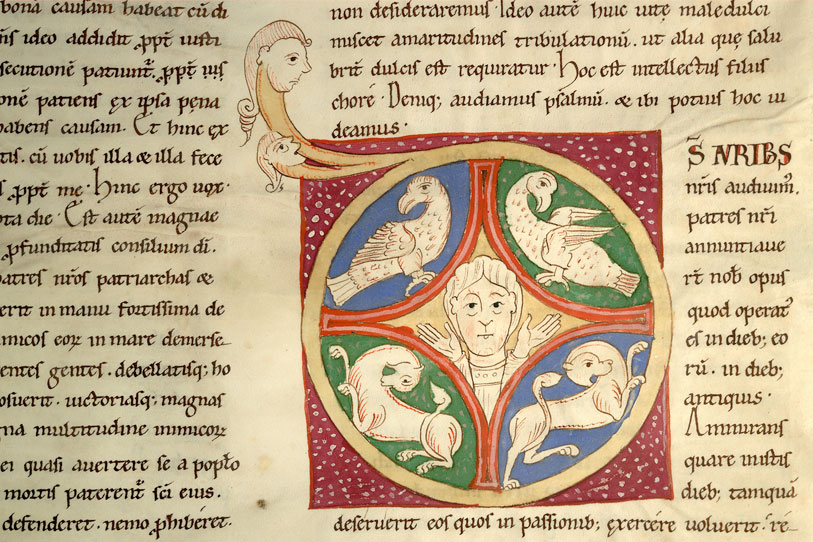 bona causam habeat cū di
ñs ideo addidit ꝓpt̄ iusti
secutionē patiunt̄ ꝓpt̄ ius
onē patiens ex ipsa pena
habens causam. Et hinc ex
tis. cū uobis illa & illa fece
ꝓpt̄ me. hinc ergo uox.
ota die. Est autē magnae
ꝓfunditatis consilium dī.
patres nr̄os patriarchas &
erit in manu fortissima de
imicos eoꝝ in mare demerse
entes gentes. debellatisq; ho
osuerit. uictoriasq; magnas
gna multitudine inimicoꝝ
ei quasi auertere se a poplo
mortis paterent̄ sc̄i eius.
defenderet. nemo ꝓhiberet.
non desideraremus. Ideo autē huic uitę male dulci
miscet amaritudines tribulationū. ut alia quę salu
brit̄ dulcis est requiratur. hoc est intellectus filiis
chorę. Deniq; audiamus psalmū. & ibi potius hoc ui
deamus.
AVRIBS
nr̄is audiuim̄.
patres nr̄i
annuntiaue
rt̄ nob̄ opus
quod operat̄
es in dieb; eo
rū. in dieb;
antiquis.
Ammirans
quare in istis
dieb; tamquā
deseruerit eos quos in passionib; exercere uoluerit. re